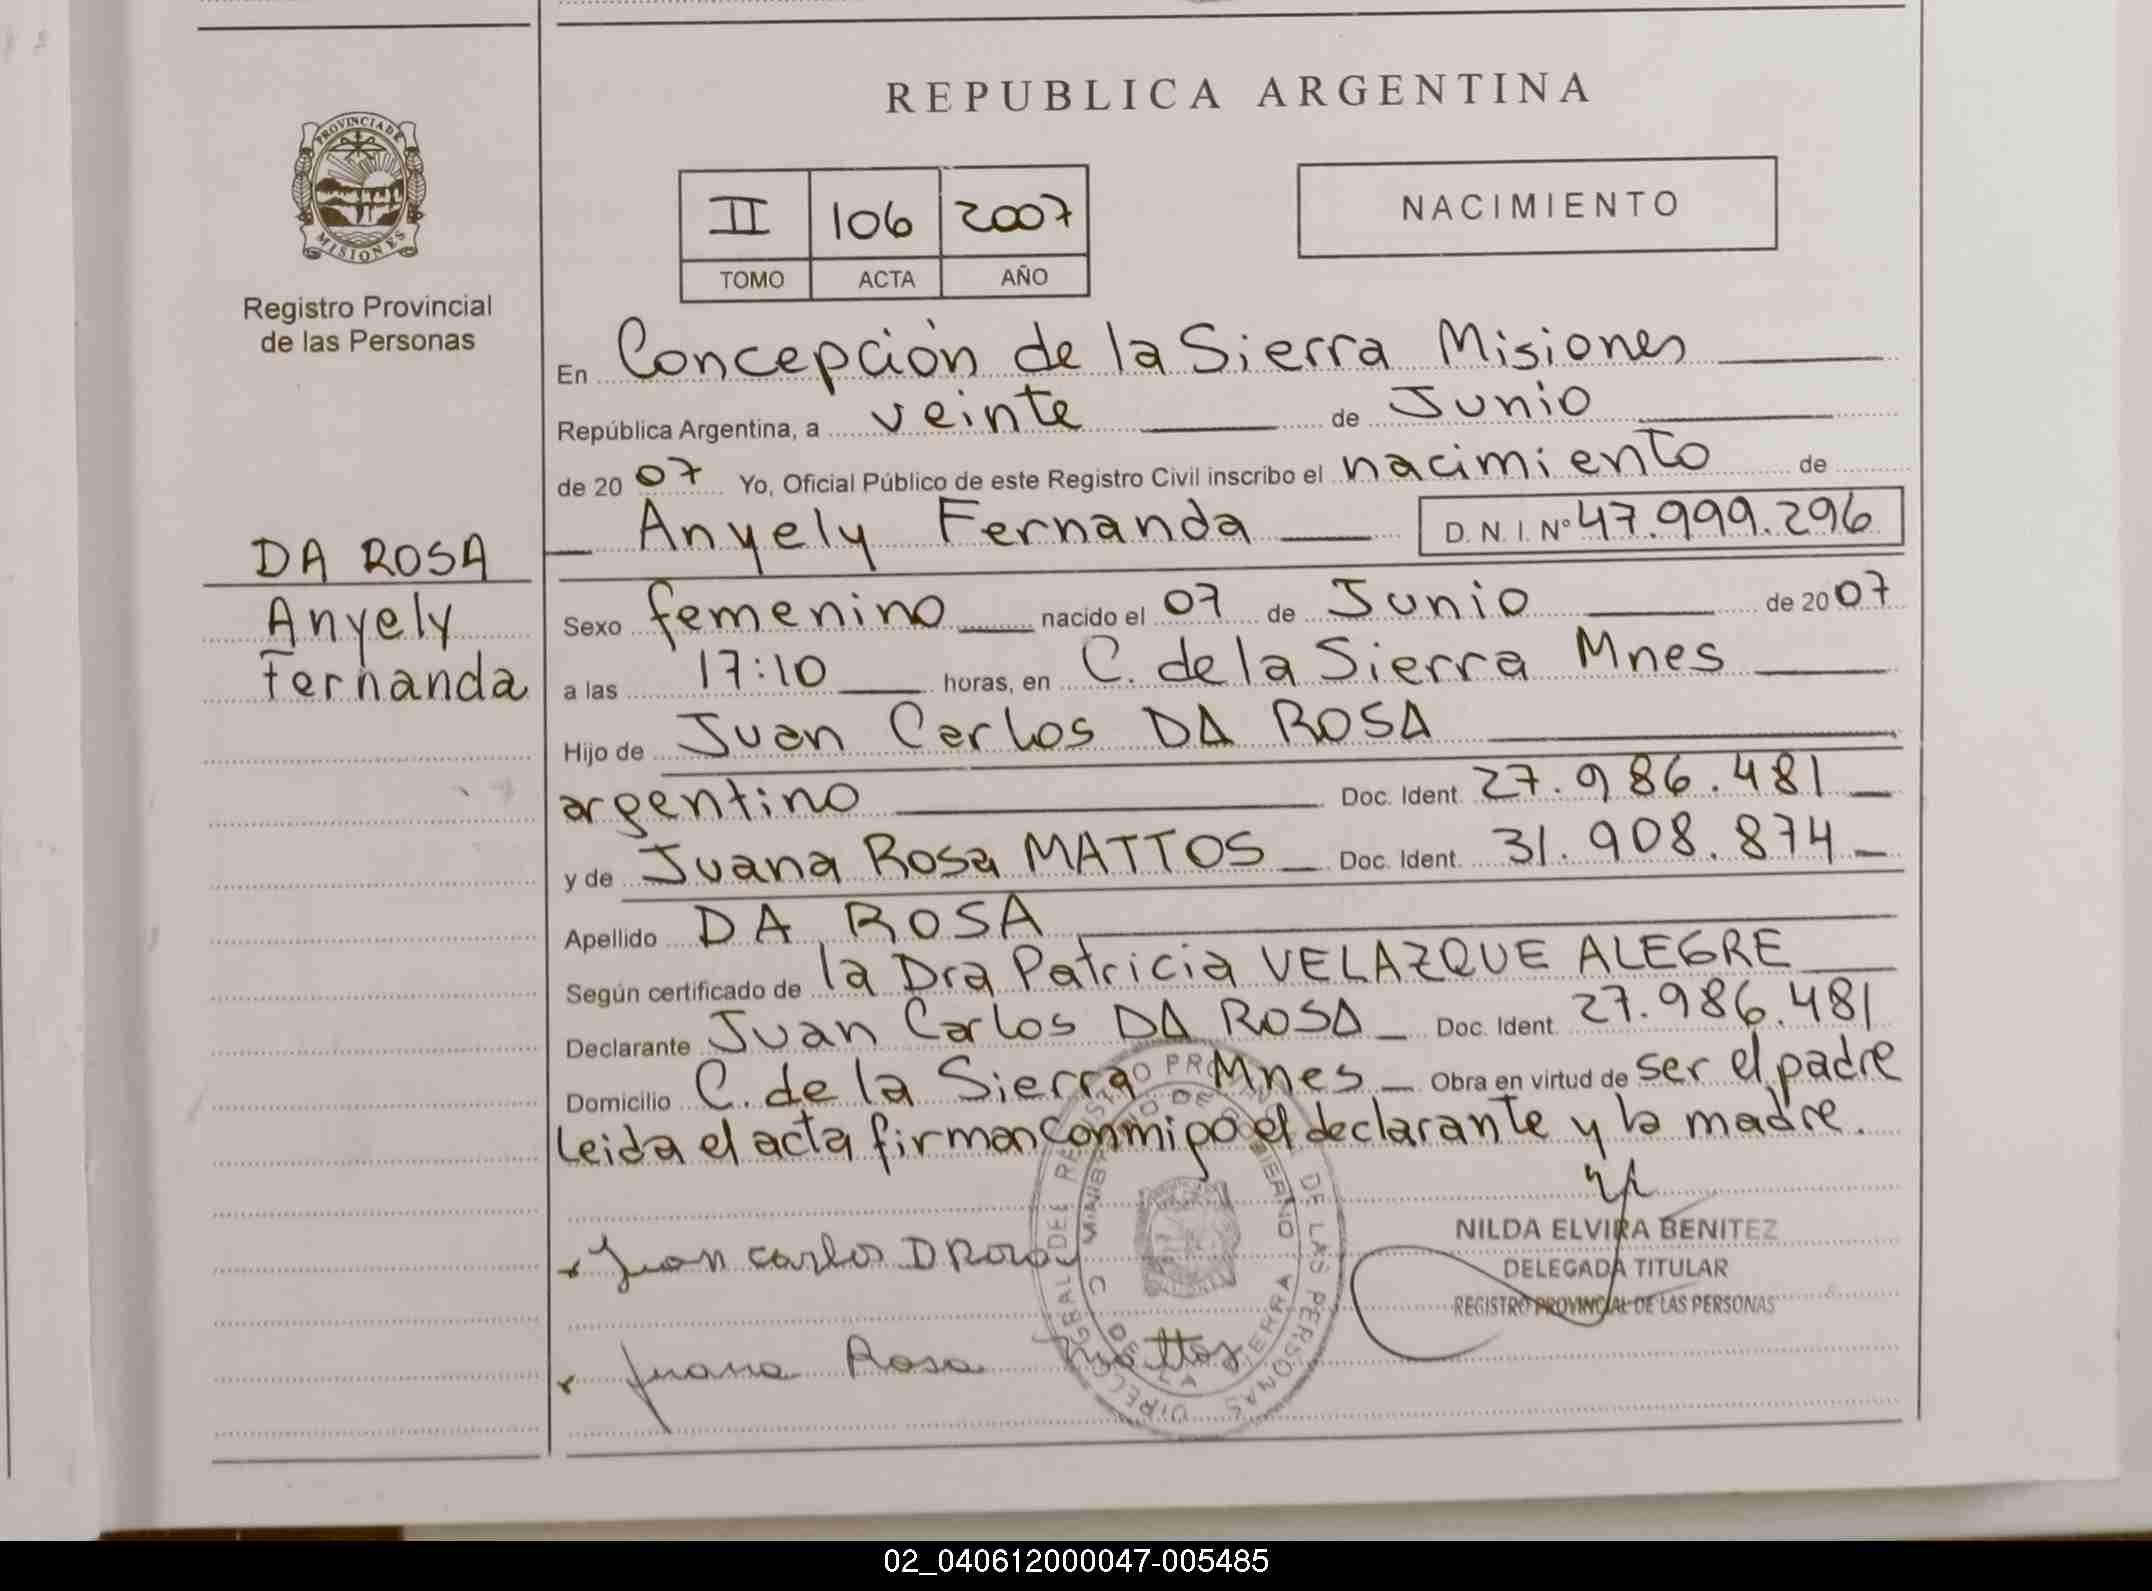 REPUBLICA ARGENTINA
PROVINCIA DE
MISIONES
Registro Provincial
de las Personas
II 106 2007
TOMO ACTA AÑO
NACIMIENTO
En Concepción de la Sierra Misiones
República Argentina, a veinte de Junio
de 2007 Yo, Oficial Público de este Registro Civil inscribo el nacimiento de
Anyely Fernanda D. N. I. Nº 47.999.296
DA ROSA
Anyely
Fernanda
Sexo femenino nacido el 07 de Junio de 2007
a las 17:10 horas, en C. de la Sierra Mnes
Hijo de Juan Carlos DA ROSA
argentino Doc. Ident. 27.986.481
y de Juana Rosa MATTOS Doc. Ident. 31.908.874
Apellido DA ROSA
Según certificado de la Dra Patricia VELAZQUE ALEGRE
Declarante Juan Carlos DA ROSA Doc. Ident. 27.986.481
Domicilio C. de la Sierra Mnes Obra en virtud de ser el padre
leida el acta firman conmigo el declarante y la madre.
Juan carlos D Rosa
Juana Rosa Mattos
NILDA ELVIRA BENITEZ
DELEGADA TITULAR
REGISTRO PROVINCIAL DE LAS PERSONAS
02_040612000047-005485